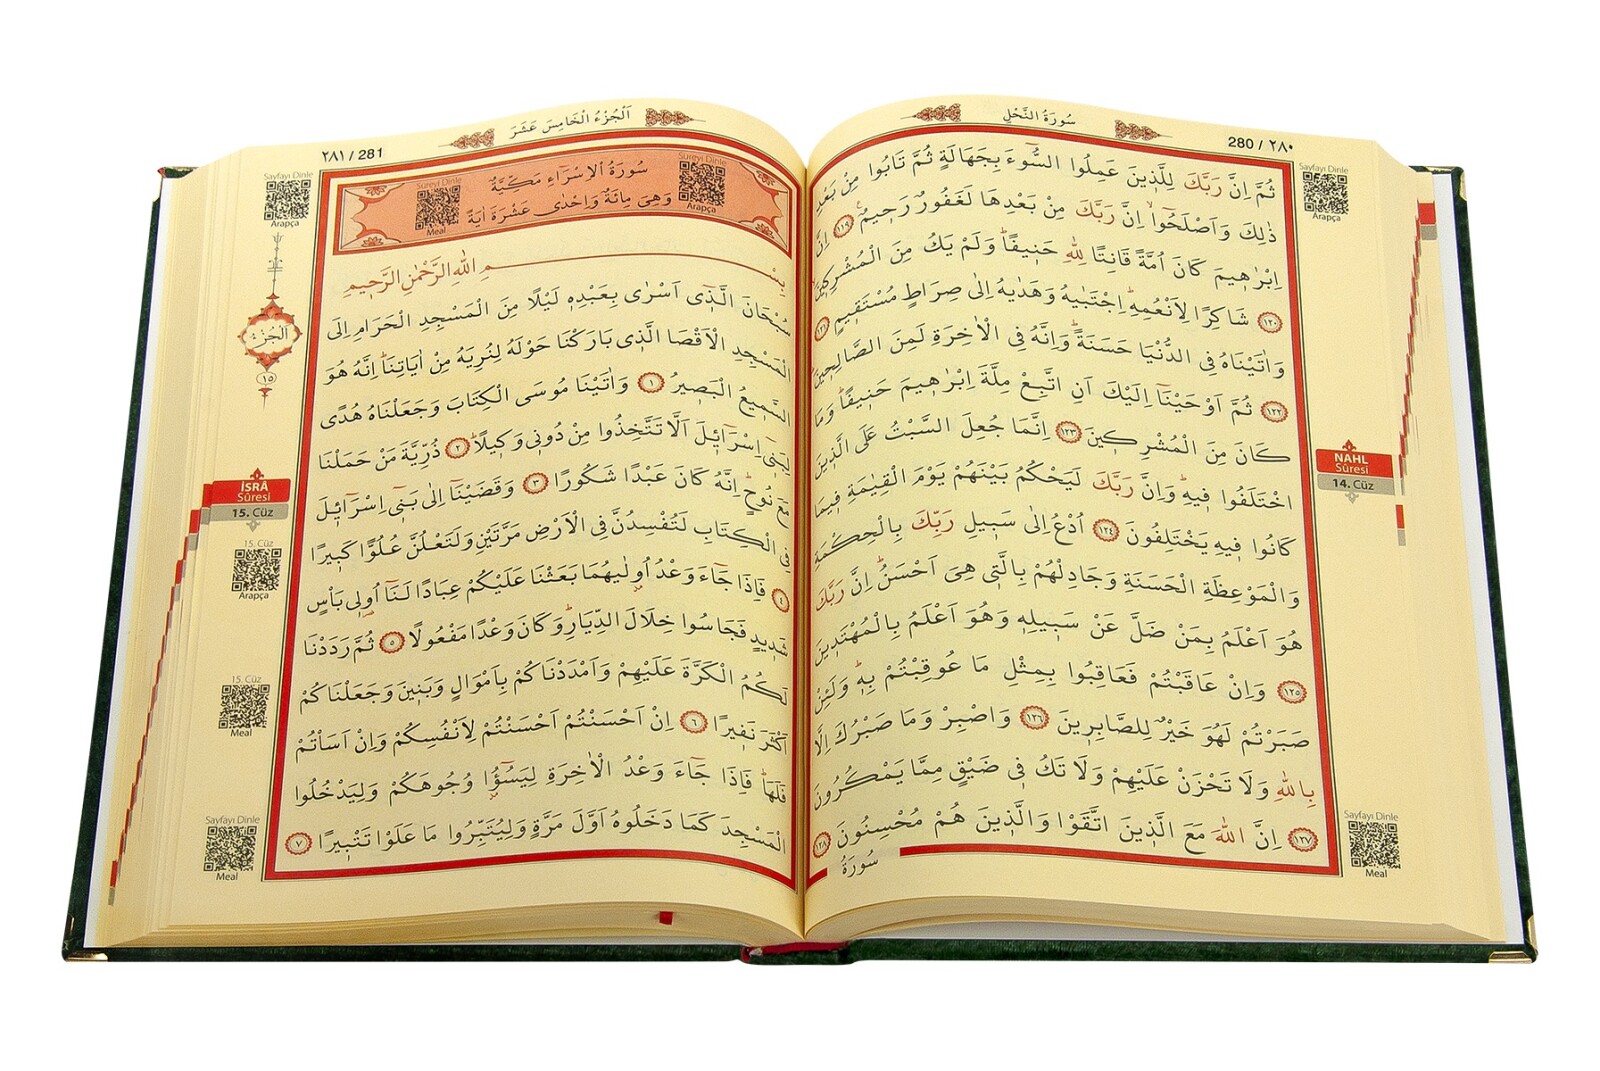 سُورَةُ النَّحْلِ
280 / ٢٨٠
ثُمَّ اِنَّ رَبَّكَ لِلَّذٖينَ عَمِلُوا السُّٓوءَ بِجَهَالَةٍ ثُمَّ تَابُوا مِنْ بَعْدِ
ذٰلِكَ وَاَصْلَحُٓوا اِنَّ رَبَّكَ مِنْ بَعْدِهَا لَغَفُورٌ رَحٖيمٌ ﴿١١٩﴾ اِنَّ
اِبْرٰهٖيمَ كَانَ اُمَّةً قَانِتًا لِلّٰهِ حَنٖيفًاؕ وَلَمْ يَكُ مِنَ الْمُشْرِكٖينَ
﴿١٢٠﴾ شَاكِرًا لِاَنْعُمِهٖؕ اِجْتَبٰيهُ وَهَدٰيهُ اِلٰى صِرَاطٍ مُسْتَقٖيمٍ ﴿١٢١﴾
وَاٰتَيْنَاهُ فِى الدُّنْيَا حَسَنَةًؕ وَاِنَّهُ فِى الْاٰخِرَةِ لَمِنَ الصَّالِحٖينَ
﴿١٢٢﴾ ثُمَّ اَوْحَيْنَٓا اِلَيْكَ اَنِ اتَّبِعْ مِلَّةَ اِبْرٰهٖيمَ حَنٖيفًاؕ وَمَا
كَانَ مِنَ الْمُشْرِكٖينَ ﴿١٢٣﴾ اِنَّمَا جُعِلَ السَّبْتُ عَلَى الَّذٖينَ
اخْتَلَفُوا فٖيهِؕ وَاِنَّ رَبَّكَ لَيَحْكُمُ بَيْنَهُمْ يَوْمَ الْقِيٰمَةِ فٖيمَا
كَانُوا فٖيهِ يَخْتَلِفُونَ ﴿١٢٤﴾ اُدْعُ اِلٰى سَبٖيلِ رَبِّكَ بِالْحِكْمَةِ
وَالْمَوْعِظَةِ الْحَسَنَةِ وَجَادِلْهُمْ بِالَّتٖى هِىَ اَحْسَنُؕ اِنَّ رَبَّكَ
هُوَ اَعْلَمُ بِمَنْ ضَلَّ عَنْ سَبٖيلِهٖ وَهُوَ اَعْلَمُ بِالْمُهْتَدٖينَ
﴿١٢٥﴾ وَاِنْ عَاقَبْتُمْ فَعَاقِبُوا بِمِثْلِ مَا عُوقِبْتُمْ بِهٖؕ وَلَئِنْ
صَبَرْتُمْ لَهُوَ خَيْرٌ لِلصَّابِرٖينَ ﴿١٢٦﴾ وَاصْبِرْ وَمَا صَبْرُكَ اِلَّا
بِاللّٰهِ وَلَا تَحْزَنْ عَلَيْهِمْ وَلَا تَكُ فٖى ضَيْقٍ مِمَّا يَمْكُرُونَ
﴿١٢٧﴾ اِنَّ اللّٰهَ مَعَ الَّذٖينَ اتَّقَوْا وَالَّذٖينَ هُمْ مُحْسِنُونَ ﴿١٢٨﴾
سُورَةُ
Sayfayı Dinle
Arapça
NAHL
Sûresi
14. Cüz
Sayfayı Dinle
Meal
اَلْجُزْءُ الْخَامِسَ عَشَرَ
٢٨١ / 281
سُورَةُ الْاِسْرَٓاءِ مَكِّيَّةٌ
وَهِىَ مِائَةٌ وَاِحْدٰى عَشْرَةَ اٰيَةً
Sûreyi Dinle
Arapça
Sûreyi Dinle
Meal
بِسْمِ اللّٰهِ الرَّحْمٰنِ الرَّحٖيمِ
سُبْحَانَ الَّذٖٓى اَسْرٰى بِعَبْدِهٖ لَيْلًا مِنَ الْمَسْجِدِ الْحَرَامِ اِلَى
الْمَسْجِدِ الْاَقْصَا الَّذٖى بَارَكْنَا حَوْلَهُ لِنُرِيَهُ مِنْ اٰيَاتِنَاؕ اِنَّهُ هُوَ
السَّمٖيعُ الْبَصٖيرُ ﴿١﴾ وَاٰتَيْنَا مُوسَى الْكِتَابَ وَجَعَلْنَاهُ هُدًى
لِبَنٖٓى اِسْرَٓائٖلَ اَلَّا تَتَّخِذُوا مِنْ دُونٖى وَكٖيلًاؕ ﴿٢﴾ ذُرِّيَّةَ مَنْ حَمَلْنَا
مَعَ نُوحٍؕ اِنَّهُ كَانَ عَبْدًا شَكُورًا ﴿٣﴾ وَقَضَيْنَٓا اِلٰى بَنٖٓى اِسْرَٓائٖلَ
فِى الْكِتَابِ لَتُفْسِدُنَّ فِى الْاَرْضِ مَرَّتَيْنِ وَلَتَعْلُنَّ عُلُوًّا كَبٖيرًا
﴿٤﴾ فَاِذَا جَٓاءَ وَعْدُ اُو۫لٰيهُمَا بَعَثْنَا عَلَيْكُمْ عِبَادًا لَنَٓا اُو۬لٖى بَأْسٍ
شَدٖيدٍ فَجَاسُوا خِلَالَ الدِّيَارِؕ وَكَانَ وَعْدًا مَفْعُولًا ﴿٥﴾ ثُمَّ رَدَدْنَا
لَكُمُ الْكَرَّةَ عَلَيْهِمْ وَاَمْدَدْنَاكُمْ بِاَمْوَالٍ وَبَنٖينَ وَجَعَلْنَاكُمْ
اَكْثَرَ نَفٖيرًا ﴿٦﴾ اِنْ اَحْسَنْتُمْ اَحْسَنْتُمْ لِاَنْفُسِكُمْ وَاِنْ اَسَأْتُمْ
فَلَهَاؕ فَاِذَا جَٓاءَ وَعْدُ الْاٰخِرَةِ لِيَسُٓؤُ۫ا وُجُوهَكُمْ وَلِيَدْخُلُوا
الْمَسْجِدَ كَمَا دَخَلُوهُ اَوَّلَ مَرَّةٍ وَلِيُتَبِّرُوا مَا عَلَوْا تَتْبٖيرًا ﴿٧﴾
Sayfayı Dinle
Arapça
اَلْجُزْءُ
١٥
İSRÂ
Sûresi
15. Cüz
15. Cüz
Arapça
15. Cüz
Meal
Sayfayı Dinle
Meal